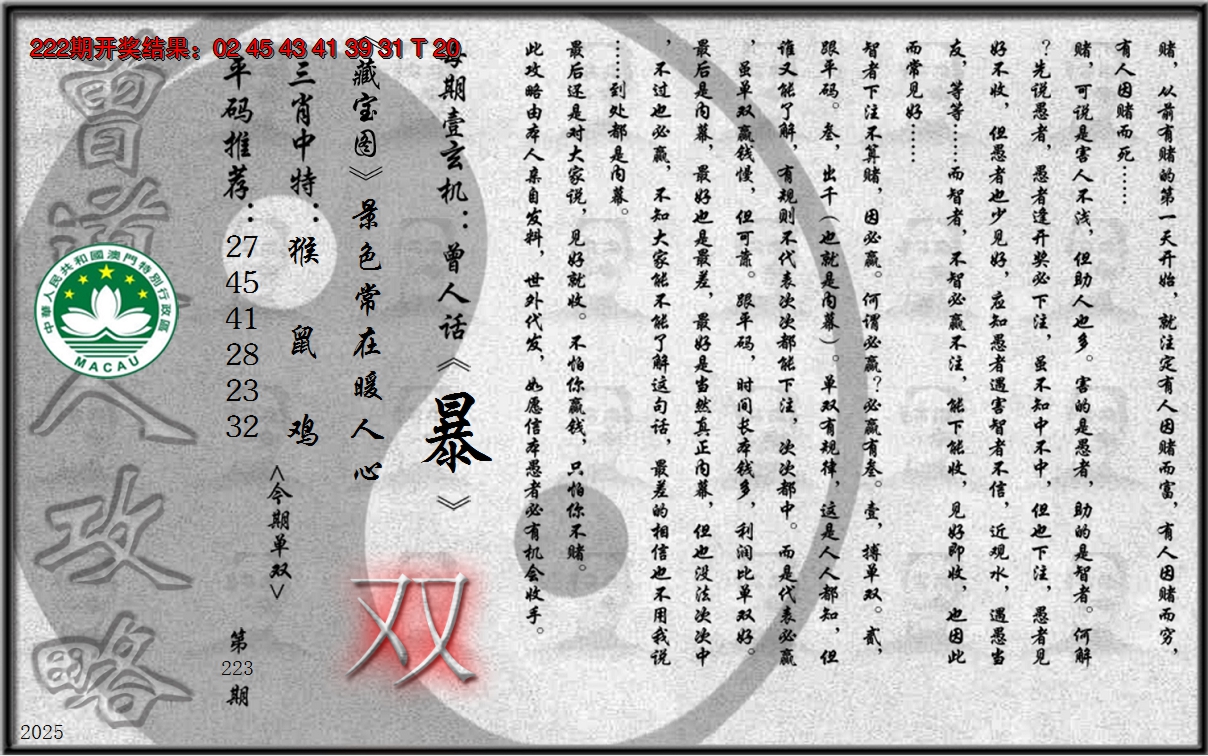 222期开奖结果：02 45 43 41 39 31 T 20
赌，从前有赌的第一天开始，就注定有人因赌而富，有人因赌而穷，
有人因赌而死……
赌，可说是害人不浅，但助人也多。害的是愚者，助的是智者。何解
？先说愚者，愚者逢开奖必下注，虽不知中不中，但也下注，愚者见
好不收，但愚者也少见好，应知愚者遇害智者不信，近观水，遇愚当
友，等等……而智者，不智必赢不注，能下能收，见好即收，也因此
而常见好……
智者下注不算赌，因必赢。何谓必赢？必赢有叁。壹，搏单双。贰，
跟平码。叁，出千（也就是内幕）。单双有规律，这是人人都知，但
谁又能了解，有规则不代表次次都能下注，次次都中。而是代表必赢
，虽单双赢钱慢，但可靠。跟平码，时间长本钱多，利润比单双好。
最后是内幕，最好也是最差，最好是当然真正内幕，但也没法次次中
，不过也必赢，不知大家能不能了解这句话，最差的相信也不用我说
……到处都是内幕。
最后还是对大家说，见好就收。不怕你赢钱，只怕你不赌。
此攻略由本人亲自发料，世外代发，如愿信本愚者必有机会收手。
每期壹玄机：曾人话《暴》
《藏宝图》景色常在暖人心
双
三肖中特：猴 鼠 鸡
<今期单双>
平码推荐：
27
45
41
28
23
32
第
223
期
曾道人攻略
中華人民共和國澳門特別行政區
MACAU
2025